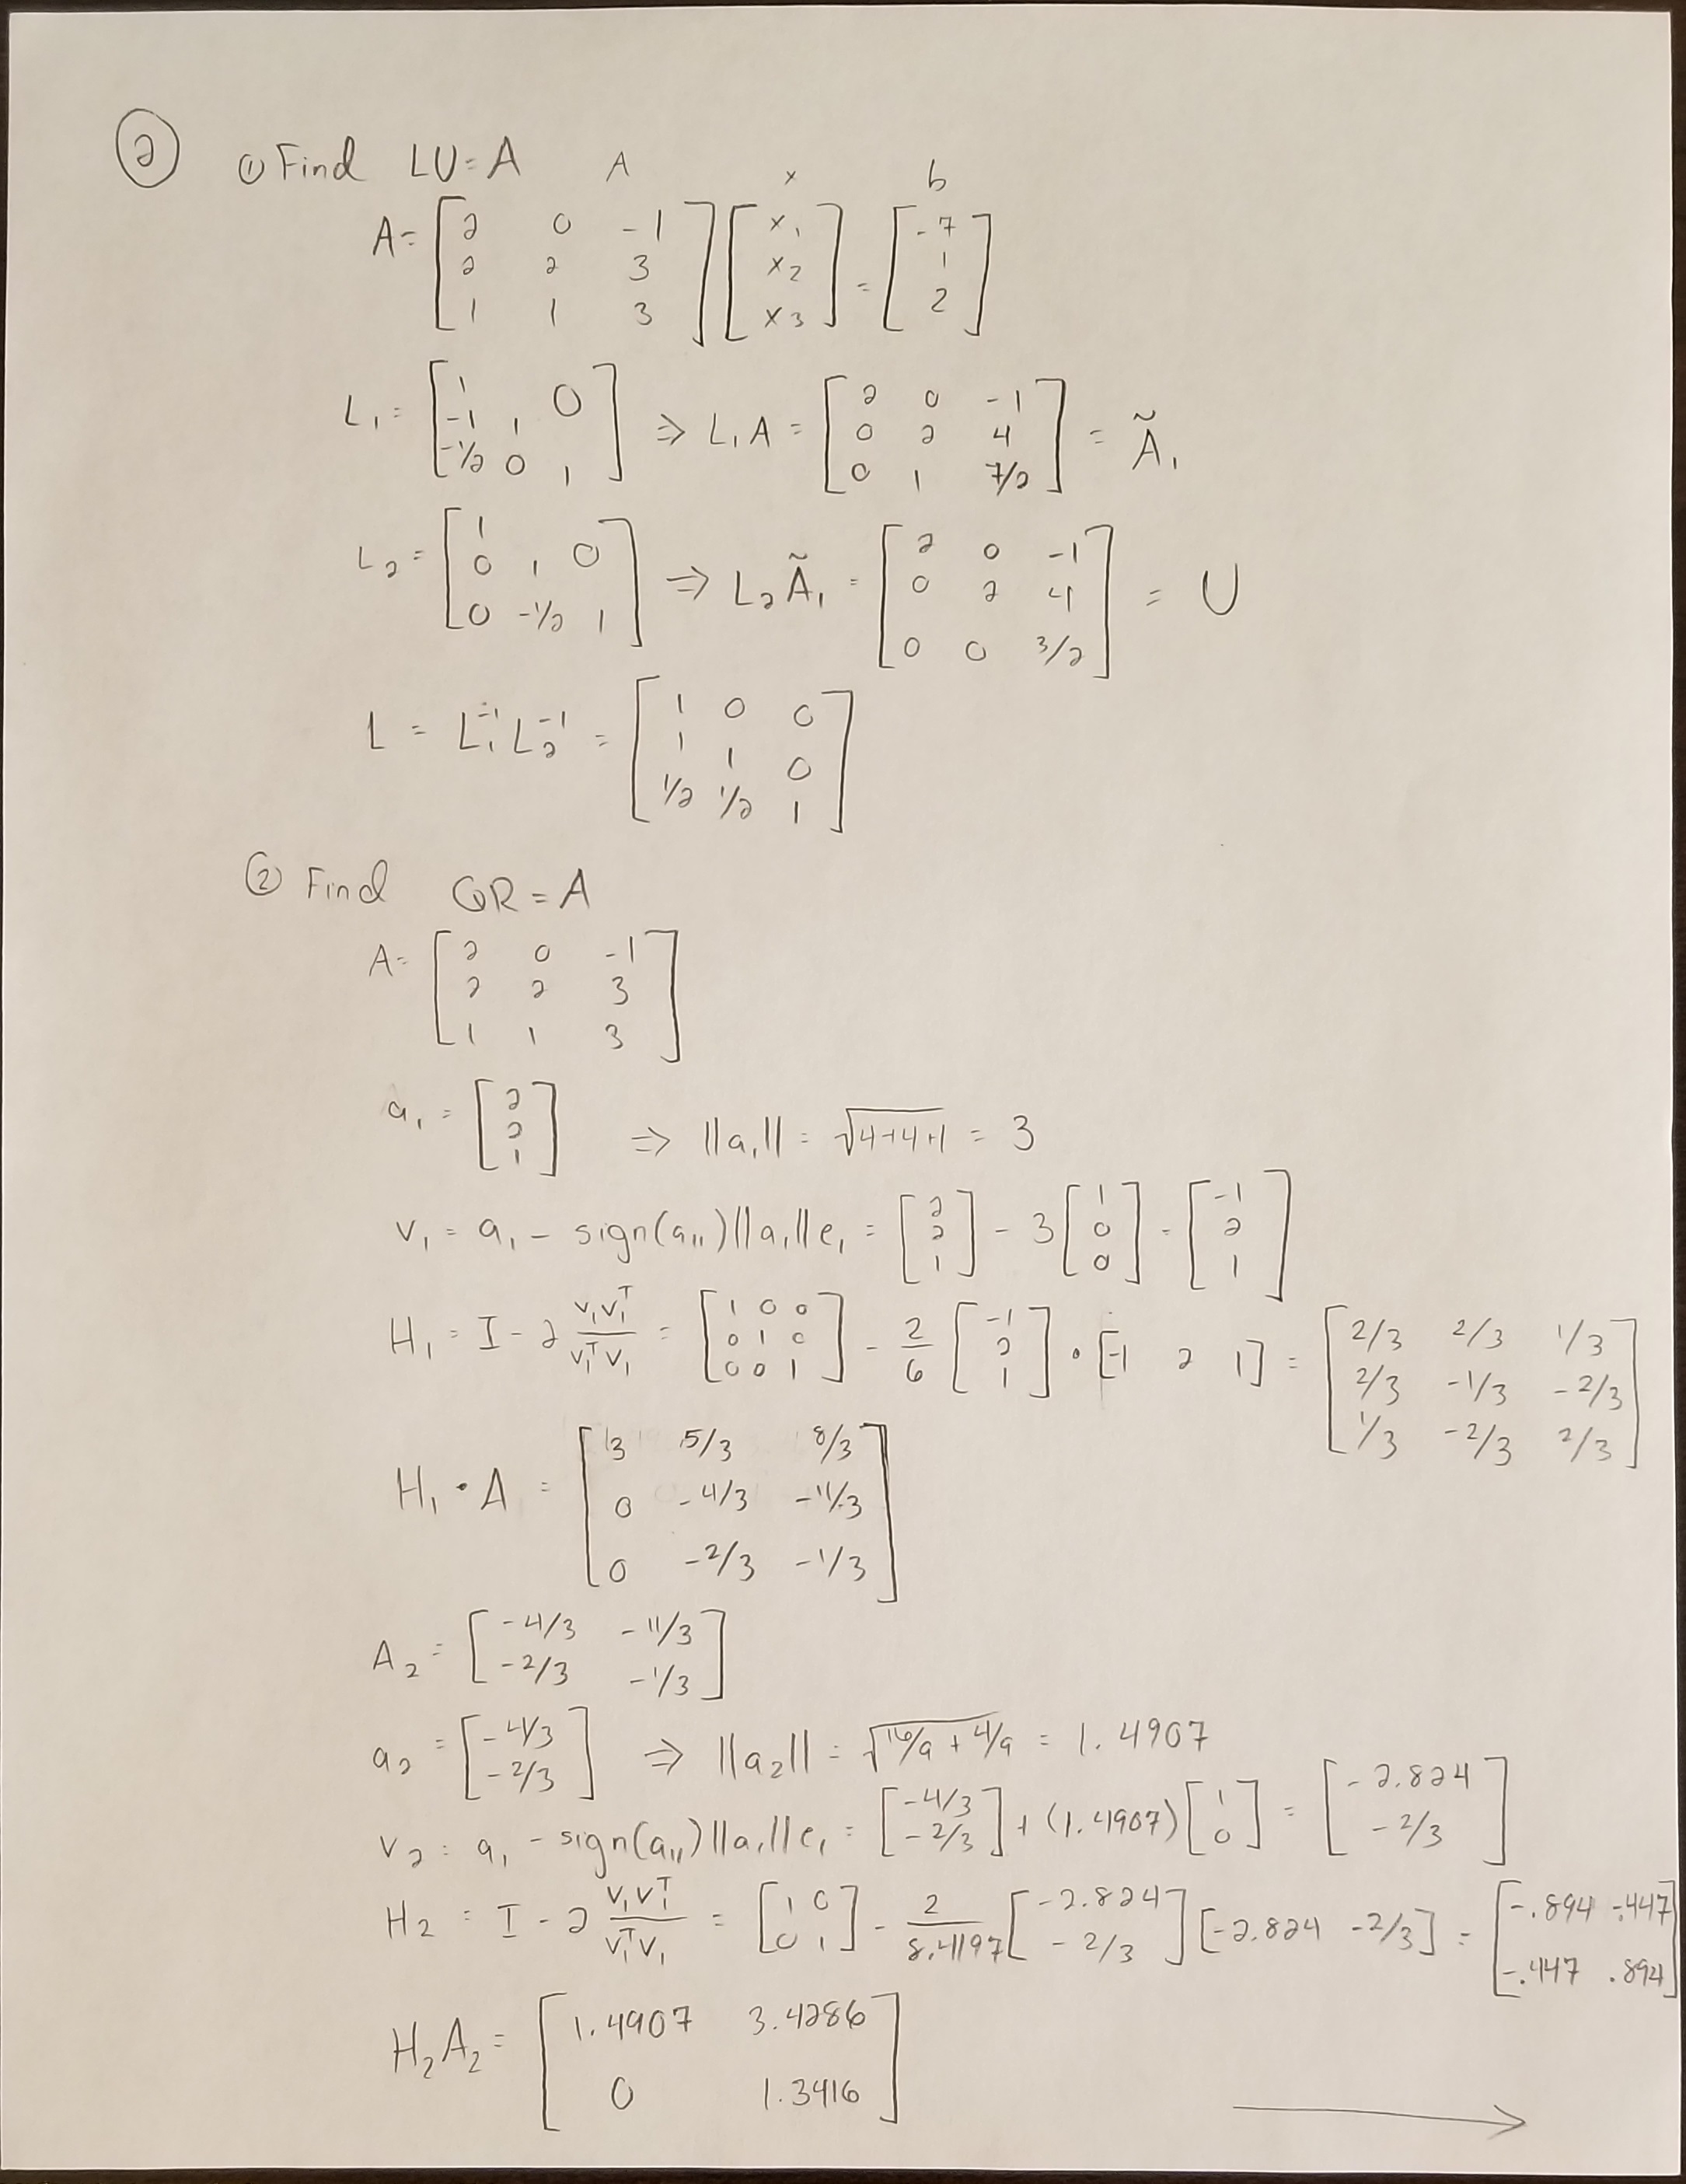 ② ① Find LU = A A x b
A = [2 0 -1; 2 2 3; 1 1 3] [x₁; x₂; x₃] = [-7; 1; 2]
L₁ = [1; -1 1 0; -1/2 0 1] ⇒ L₁A = [2 0 -1; 0 2 4; 0 1 7/2] = Ã₁
L₂ = [1; 0 1 0; 0 -1/2 1] ⇒ L₂Ã₁ = [2 0 -1; 0 2 4; 0 0 3/2] = U
L = L₁⁻¹ L₂⁻¹ = [1 0 0; 1 1 0; 1/2 1/2 1]
② Find QR = A
A = [2 0 -1; 2 2 3; 1 1 3]
a₁ = [2; 2; 1] ⇒ ||a₁|| = √4+4+1 = 3
v₁ = a₁ - sign(a₁₁)||a₁||e₁ = [2; 2; 1] - 3[1; 0; 0] = [-1; 2; 1]
H₁ = I - 2 v₁v₁ᵀ/v₁ᵀv₁ = [1 0 0; 0 1 0; 0 0 1] - 2/6 [-1; 2; 1] • [-1 2 1] = [2/3 2/3 1/3; 2/3 -1/3 -2/3; 1/3 -2/3 2/3]
H₁ • A = [3 5/3 8/3; 0 -4/3 -11/3; 0 -2/3 -1/3]
A₂ = [-4/3 -11/3; -2/3 -1/3]
a₂ = [-4/3; -2/3] ⇒ ||a₂|| = √16/9 + 4/9 = 1.4907
v₂ = a₁ - sign(a₁₁)||a₁||e₁ = [-4/3; -2/3] + (1.4907)[1; 0] = [-2.824; -2/3]
H₂ = I - 2 v₁v₁ᵀ/v₁ᵀv₁ = [1 0; 0 1] - 2/8.4197 [-2.824; -2/3] [-2.824 -2/3] = [-.894 -.447; -.447 .894]
H₂A₂ = [1.4907 3.4286; 0 1.3416] →